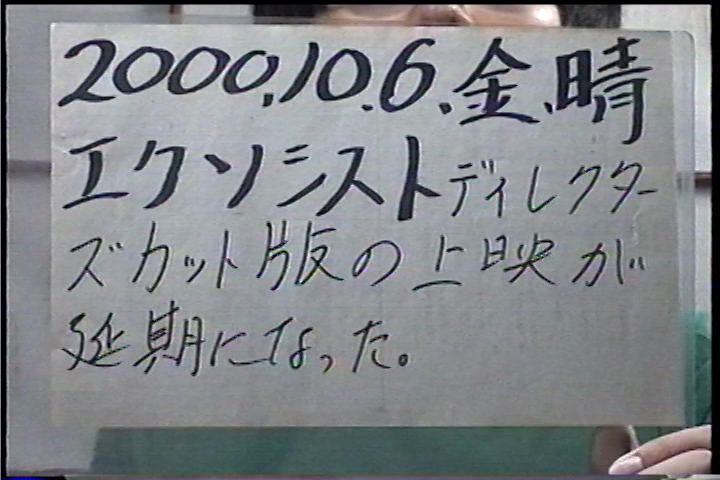 2000.10.6.金、晴
エクソシストディレクター
ズカット版の上映が
延期になった。